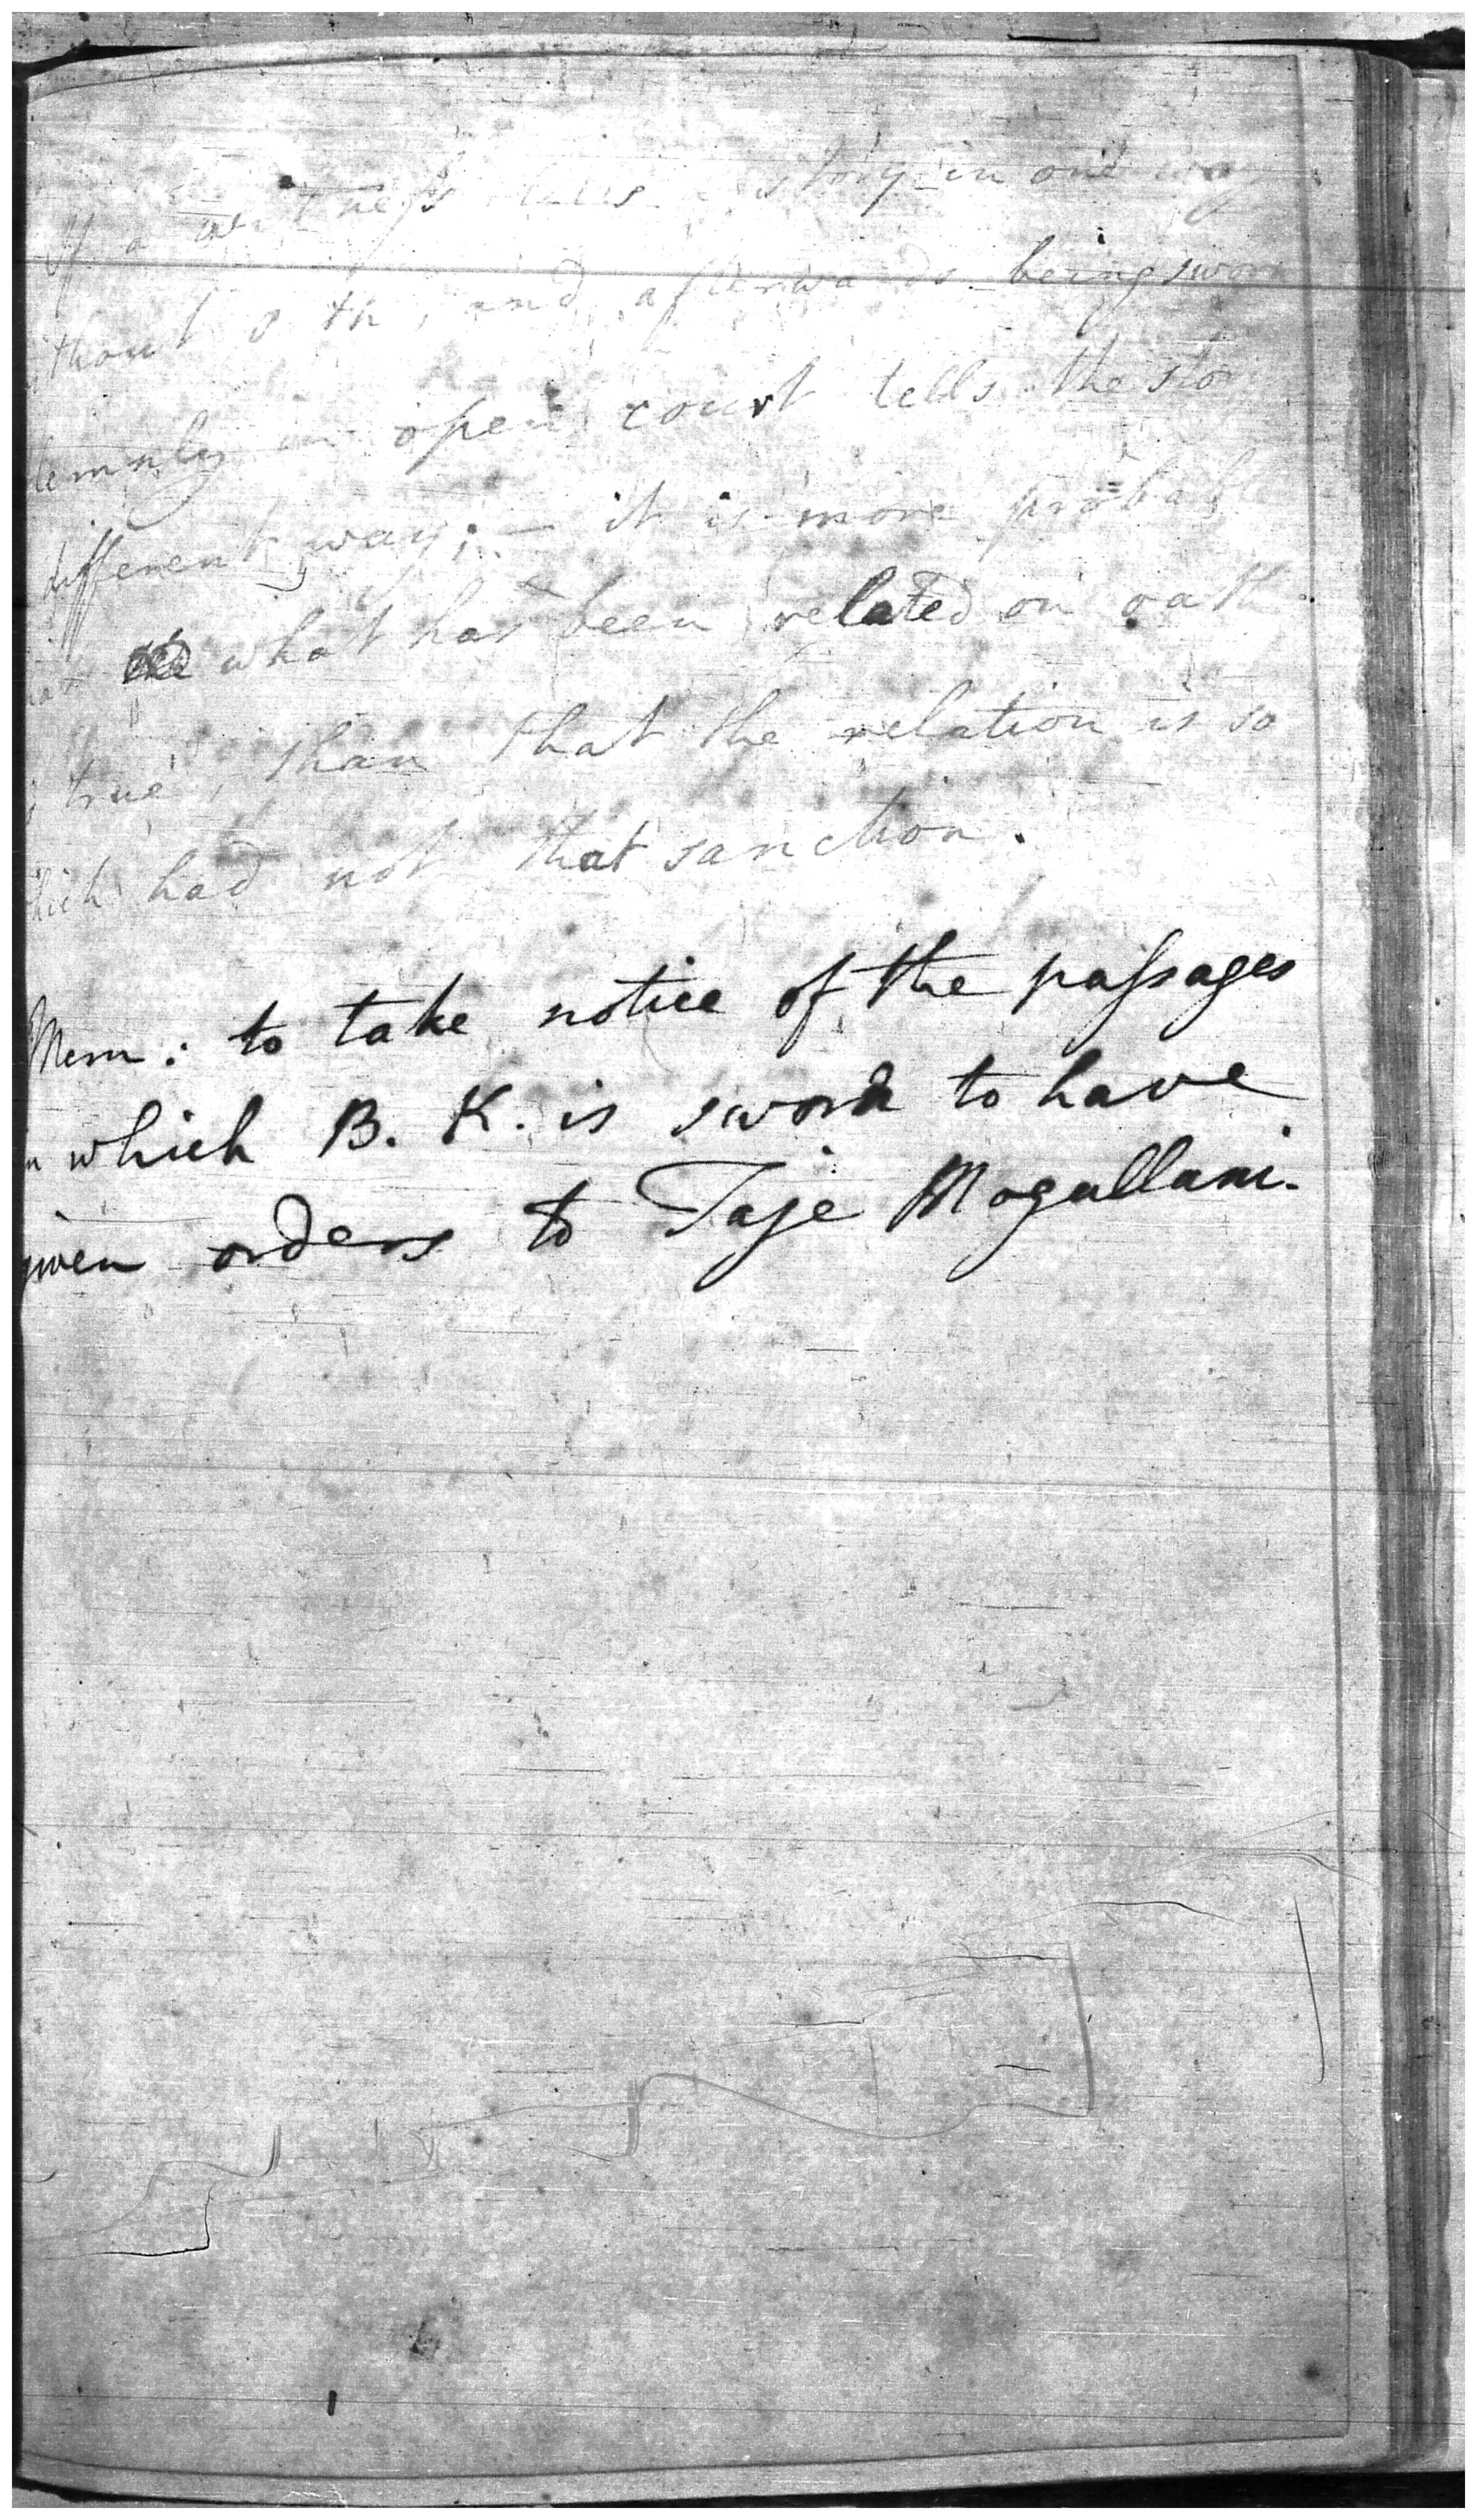 If a witness tells a story in one way
thout oath, and afterwards being sworn
lemnly in open court tells the sto
different way; – it is more probable
what has been related on oath
true, than that the relation is so
hich had not that sanction.
Mem: to take notice of the passages
n which B. K. is sworn to have
given orders to Taje Mogullani.